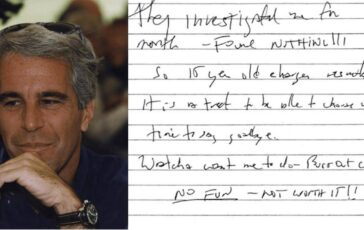 they investigated me for
month - Found NOTHING!!!
So year old charges
It is a treat to be able to choose
time to say goodbye.
Watcha want me to do - Burst out c
NO FUN - NOT WORTH IT!!